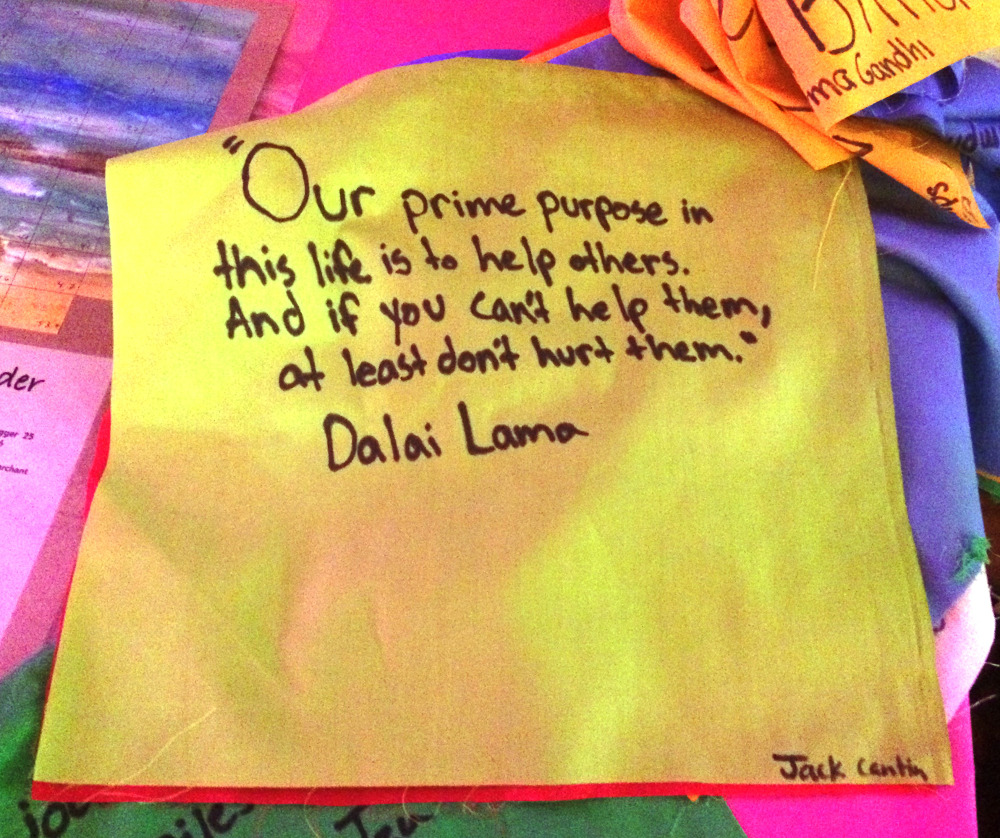 "Our prime purpose in
this life is to help others.
And if you can't help them,
at least don't hurt them."
Dalai Lama
Jack Cantin
ma Gandhi
der
gger 25
rchant